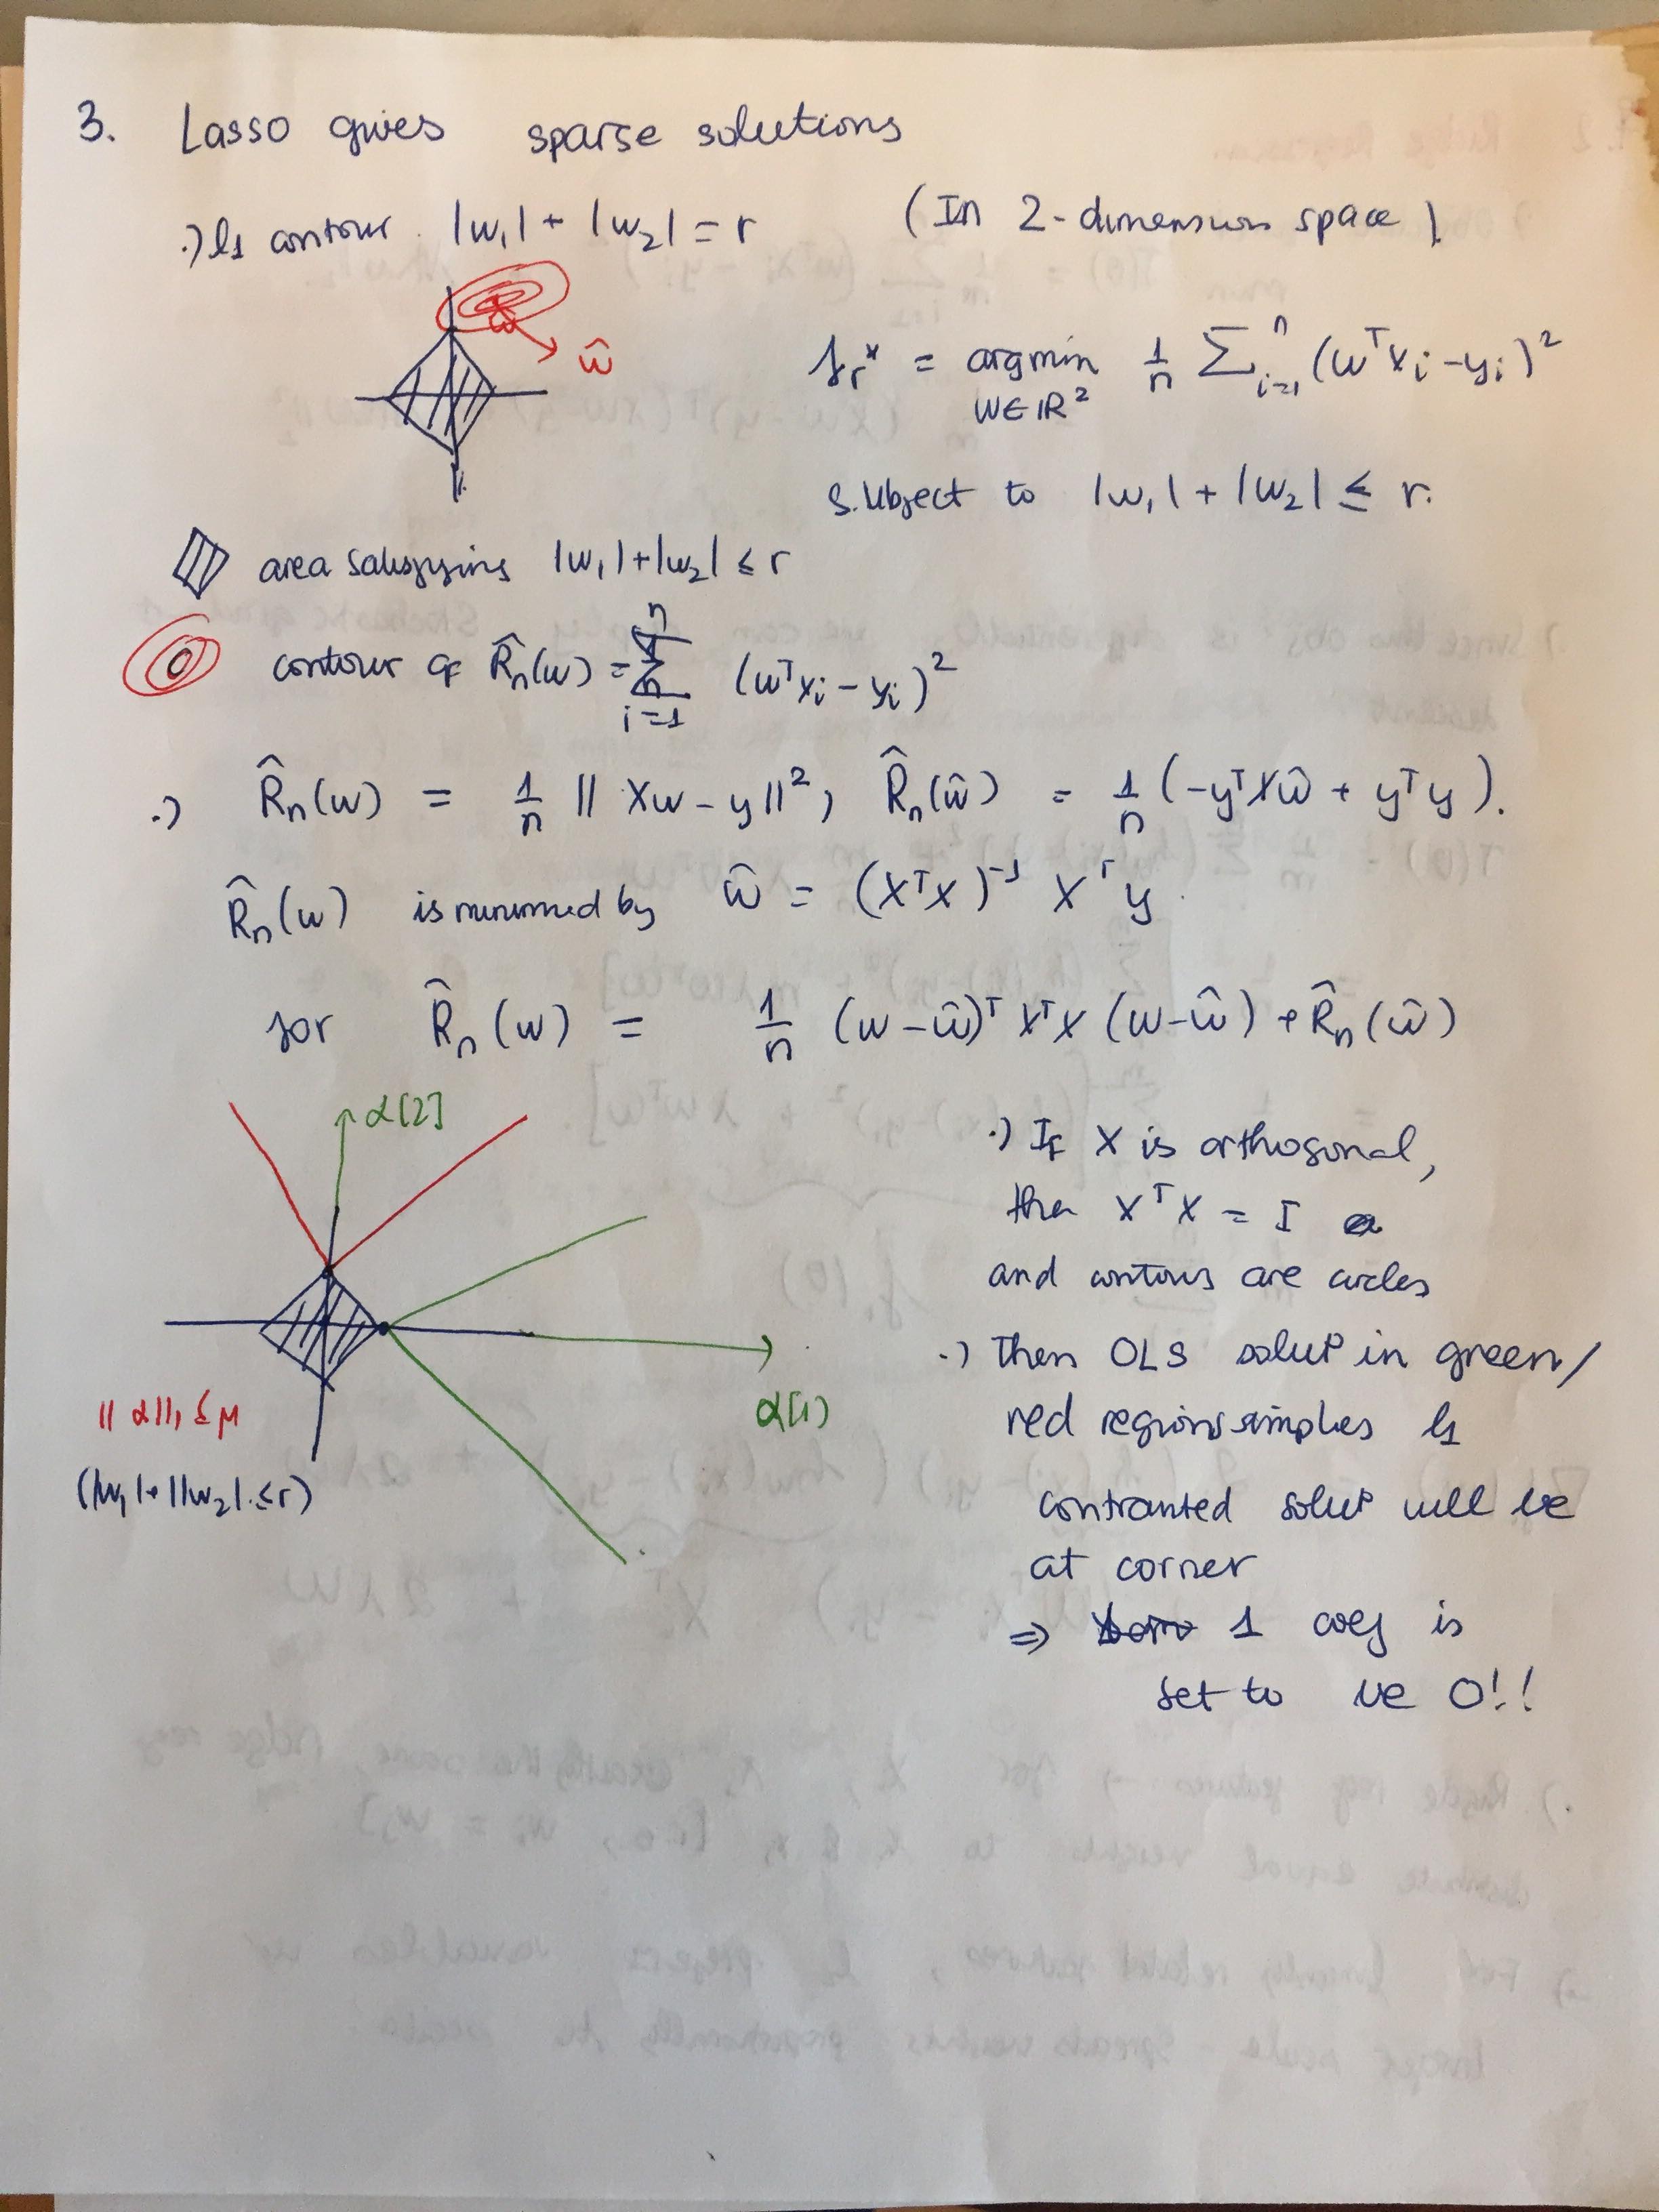 3. Lasso gives sparse solutions
·) l1 contour |w₁| + |w₂| = r (In 2-dimension space)
ŵ
fᵣ* = argmin 1/n Σⁿᵢ₌₁ (wᵀxᵢ - yᵢ)²
w∈ℝ²
Subject to |w₁| + |w₂| ≤ r.
area satisfying |w₁|+|w₂| ≤ r
contour of R̂ₙ(w) = Σⁿᵢ₌₁ (wᵀxᵢ - yᵢ)²
·) R̂ₙ(w) = 1/n || Xw - y ||², R̂ₙ(ŵ) = 1/n (-yᵀXŵ + yᵀy).
R̂ₙ(w) is minimied by ŵ = (XᵀX)⁻¹ Xᵀy.
for R̂ₙ(w) = 1/n (w-ŵ)ᵀ XᵀX (w-ŵ) + R̂ₙ(ŵ)
α[2]
α[1]
|| α ||₁ ≤ μ
(|w₁|+||w₂| ≤ r)
·) If X is orthogonal,
then XᵀX = I
and contours are circles
·) Then OLS solut° in green/
red regions implies l1
contranted solut° will be
at corner
⇒ 1 coef is
set to be 0!!